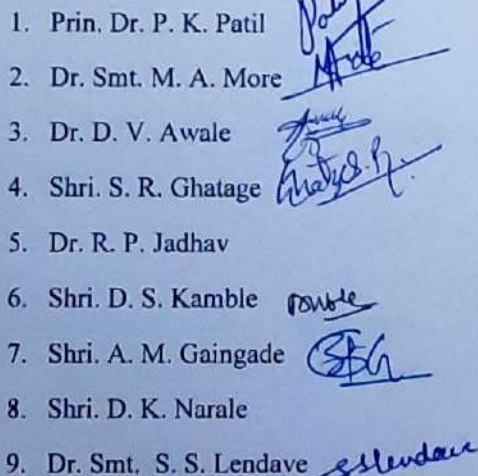 1. Prin. Dr. P. K. Patil
2. Dr. Smt. M. A. More More
3. Dr. D. V. Awale
4. Shri. S. R. Ghatage
5. Dr. R. P. Jadhav
6. Shri. D. S. Kamble
7. Shri. A. M. Gaingade
8. Shri. D. K. Narale
9. Dr. Smt. S. S. Lendave sslendave